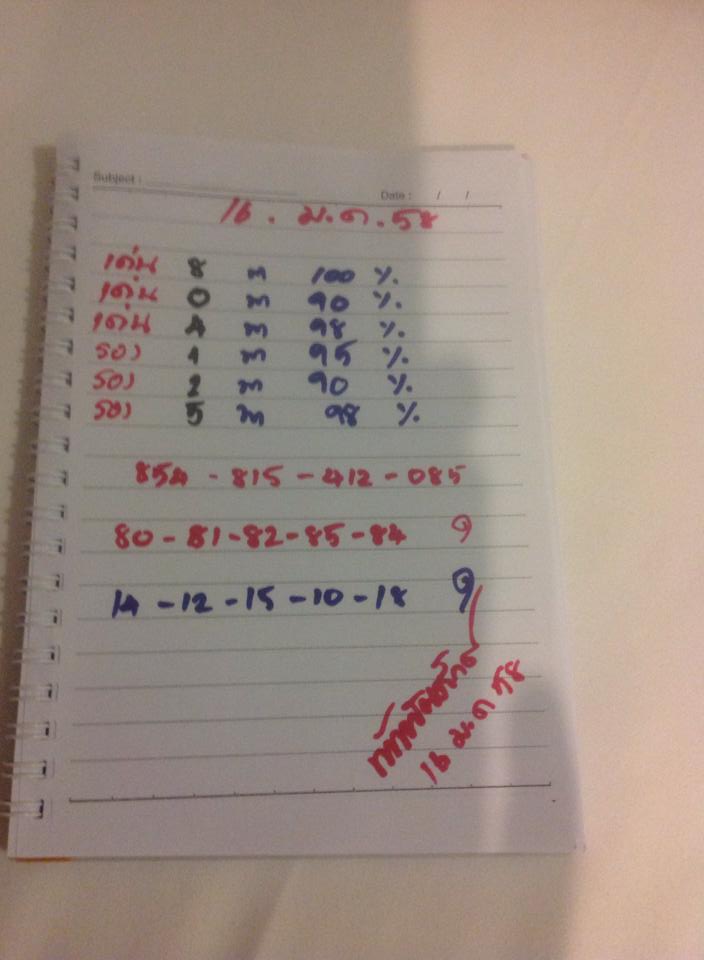 Subject :
Date : / /
16 . ม.ค. 58
เด่น 8 มา 100 %.
เด่น 0 มา 90 %.
เด่น 4 มา 98 %.
รอง 1 มา 95 %.
รอง 2 มา 90 %.
รอง 5 มา 98 %.
854 - 815 - 412 - 085
80 - 81 - 82 - 85 - 84
14 - 12 - 15 - 10 - 18
16 ม.ค 58